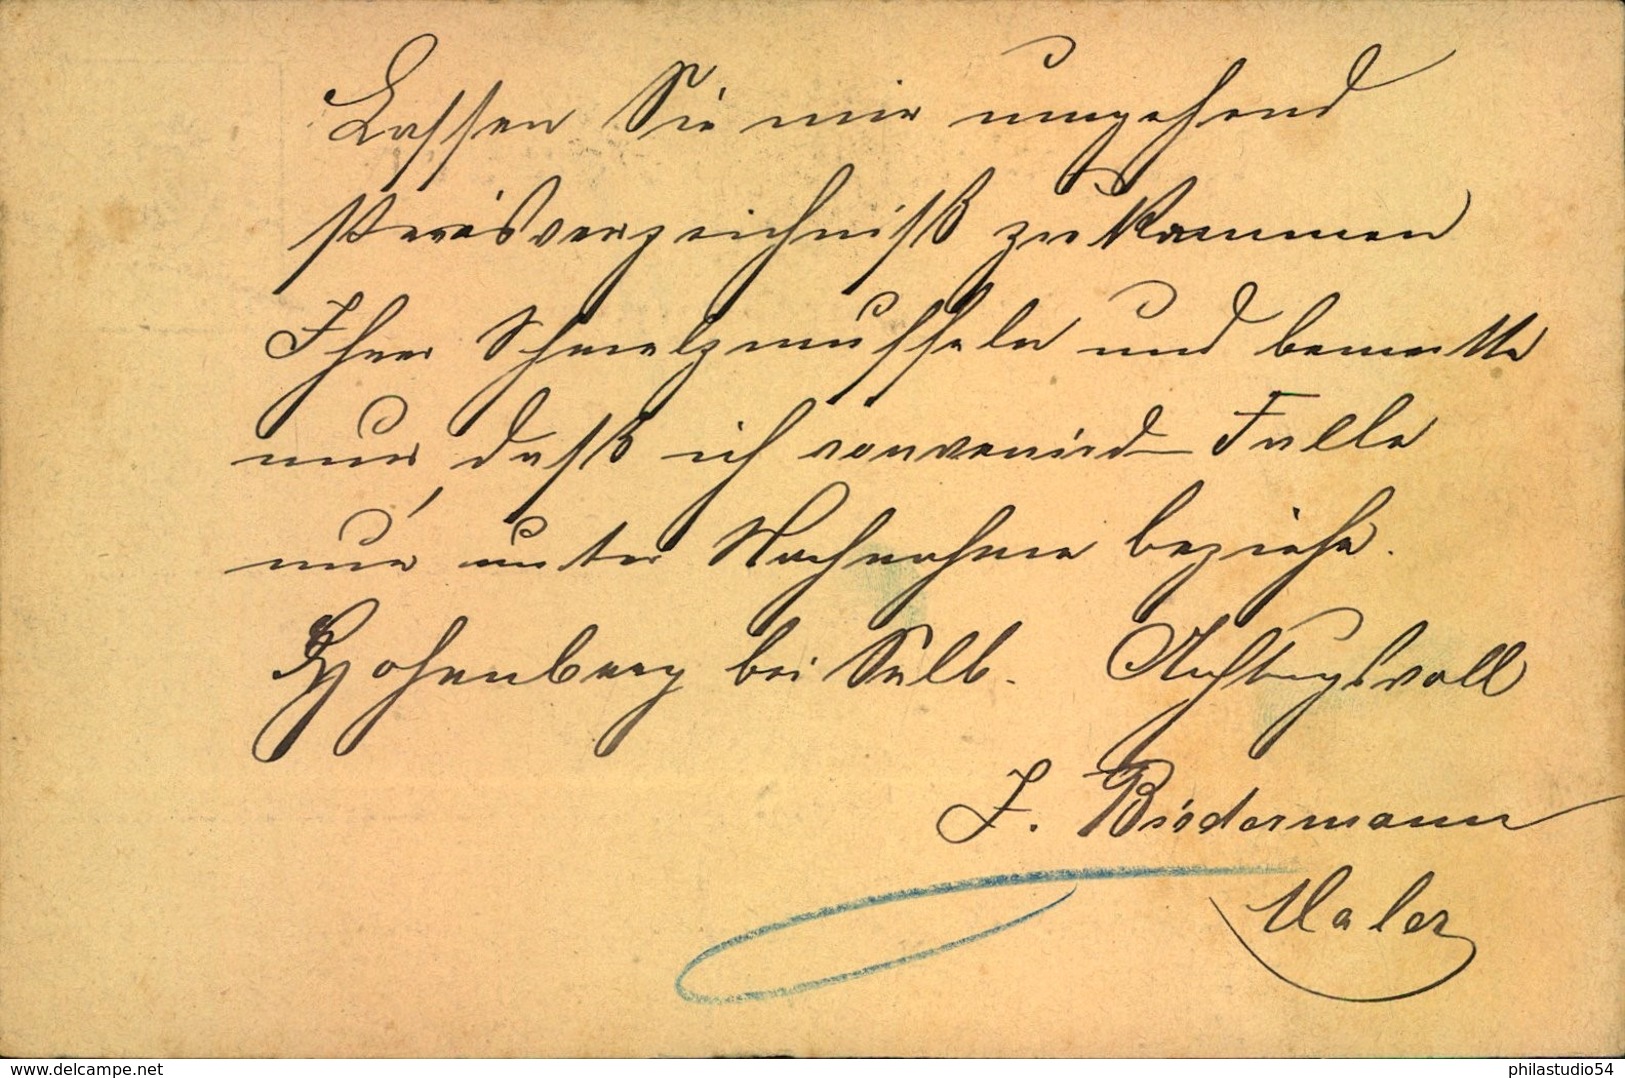 Lassen Sie mir umgehend
Preisverzeichniß zukommen
Ihrer Schmelzmuffeln und bemerke
nur, daß ich convenierd Falls
nur unter Nachnahme beziehe.
Hohenberg bei Selb. Achtungsvoll
J. Biedermann
Maler
delcampe.net
philastudio54